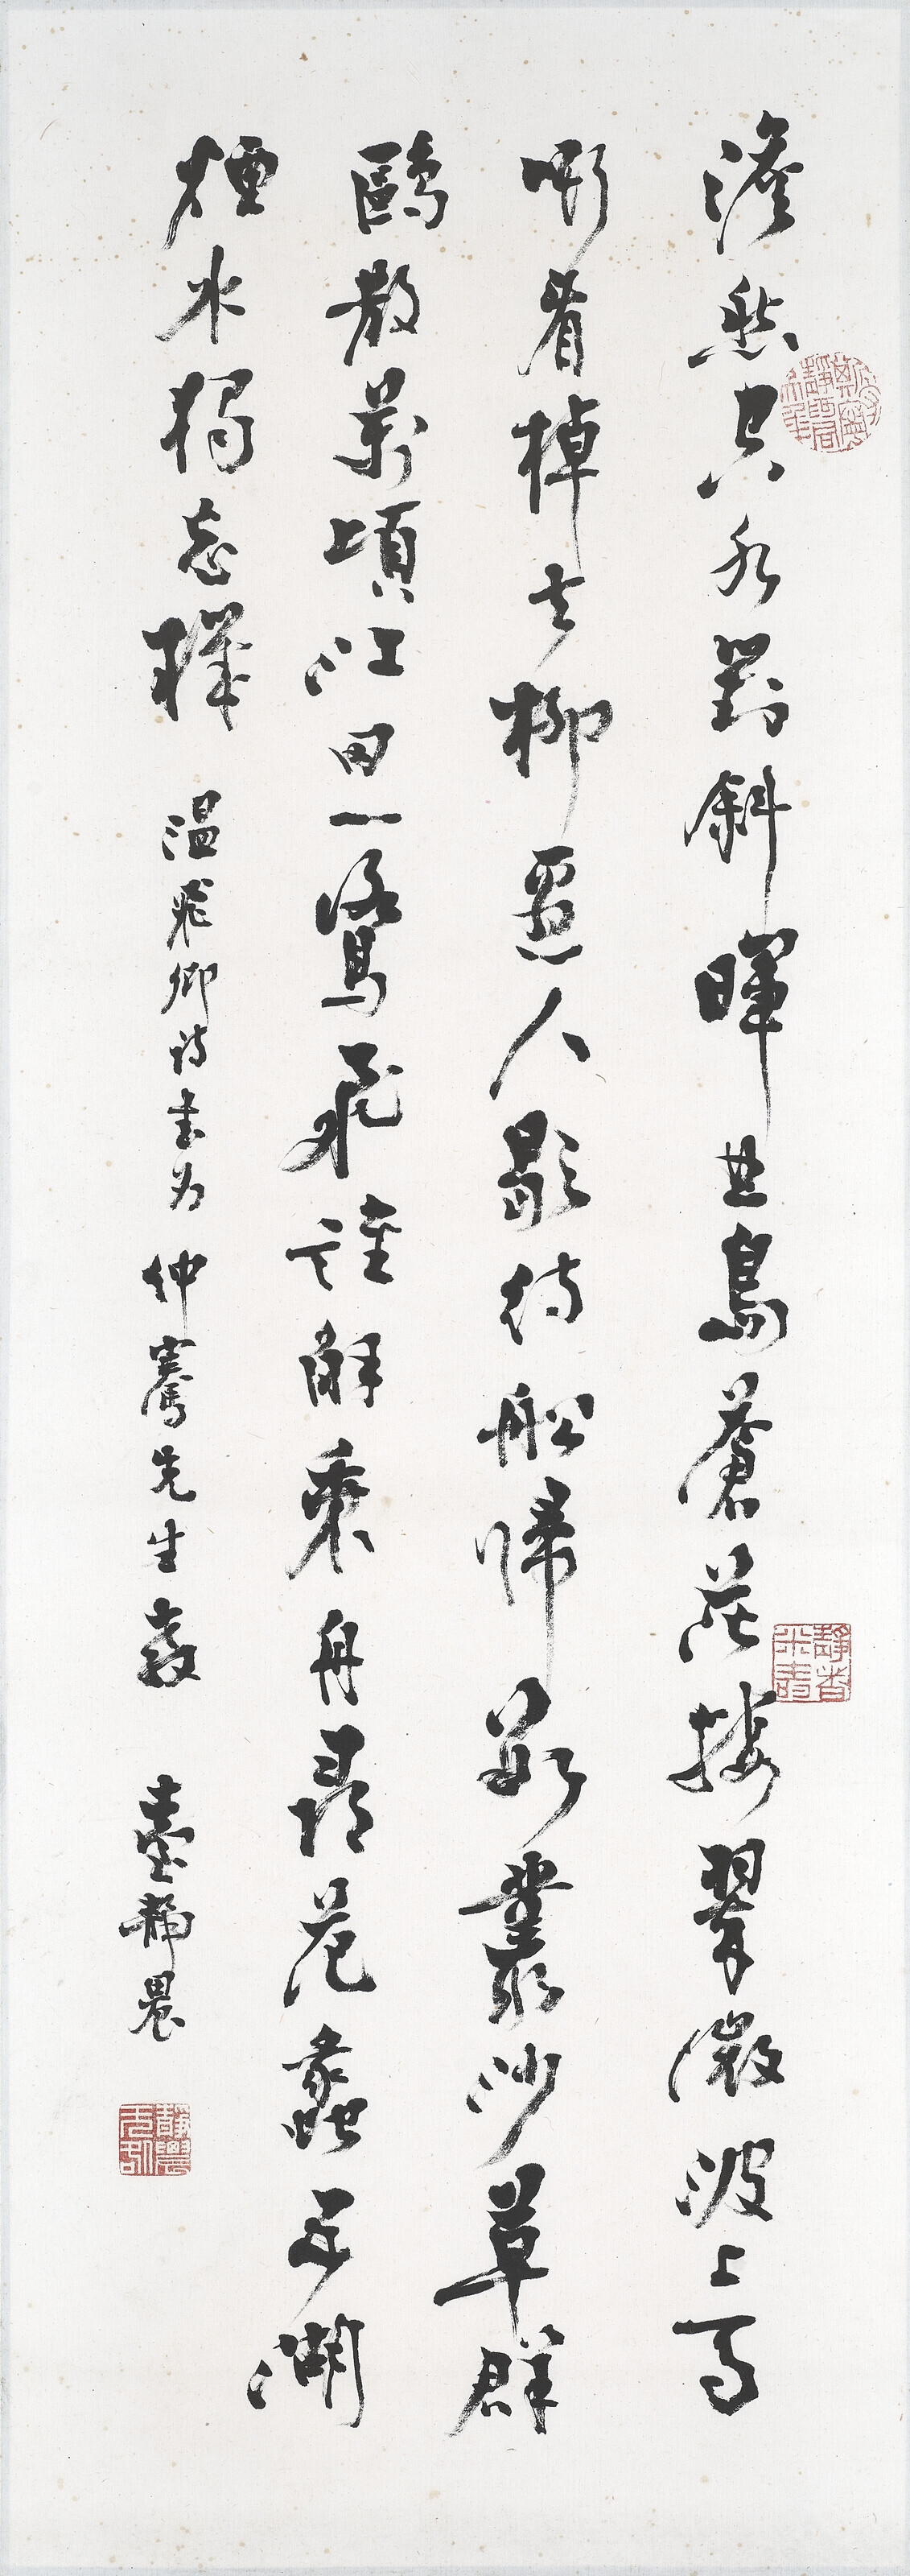 澹然空水對斜暉曲島蒼茫接翠微波上馬
嘶看棹去柳邊人歇待船歸數叢沙草群
鷗散萬頃江田一鷺飛誰解乘舟尋范蠡五湖
煙水獨忘機 溫飛卿詩書為 仲騫先生教 臺靜農